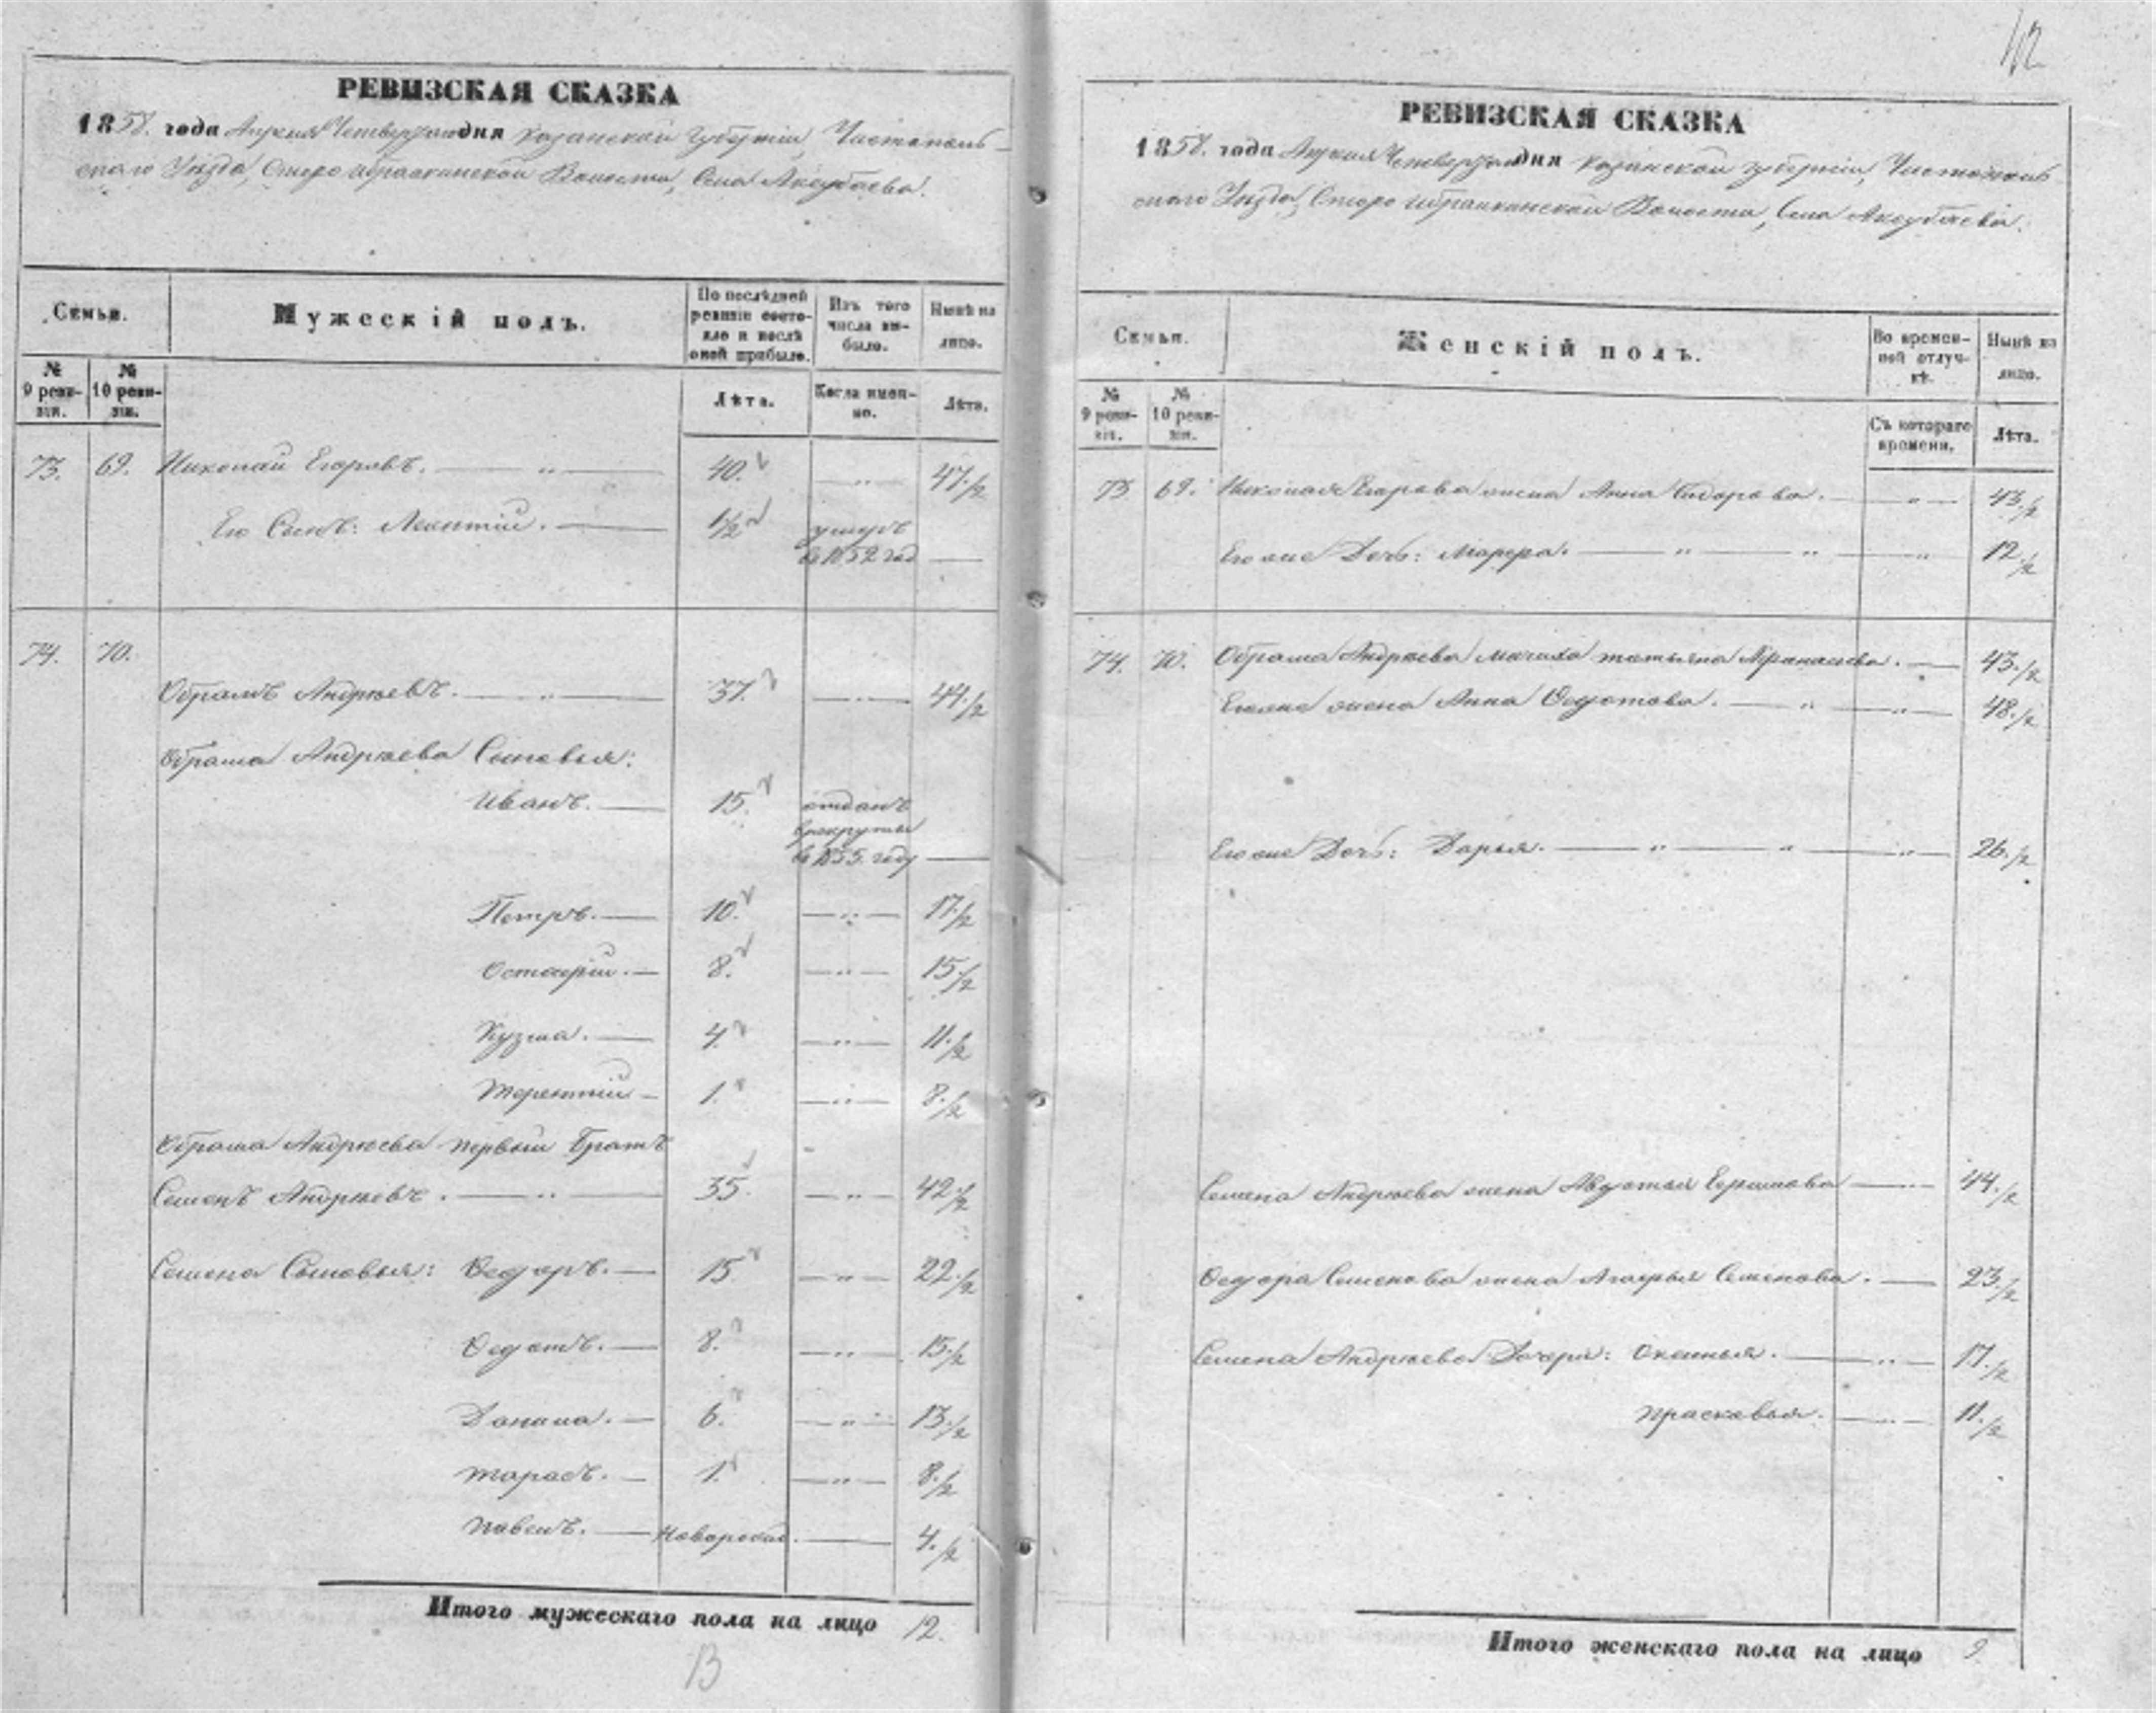 РЕВИЗСКАЯ СКАЗКА
1858. года Апреля Четвертаго дня Казанской Губернiи, Чистополь-
скаго Уѣзда, Старо Ибрайкинской Волости, Села Аксубаева.
Семьи.
Мужескiй полъ.
По послѣдней ревизiи состояло и послѣ оной прибыло.
Изъ того числа выбыло.
Нынѣ на лицо.
№ 9 ревизiи.
№ 10 ревизiи.
Лѣта.
Когда именно.
Лѣта.
73. 69. Николай Егоровъ. — „ — 40. — „ — 47./2
Его Сынъ: Леонтiй. — 1/2 умеръ
въ 1852 год —
74. 70.
Обрамъ Андреевъ. — „ — 37. — „ — 44./2
Обрама Андреева Сыновья:
Иванъ. — 15. отданъ
врекруты
въ 1855. году —
Петръ. — 10. — „ — 17./2
Остафiй. — 8. — „ — 15./2
Кузма. — 4. — „ — 11./2
Терентiй — 1. — „ — 8./2
Обрама Андреева первый Братъ
Семенъ Андреевъ. — „ — 35. — „ — 42./2
Семена Сыновья: Ѳедоръ. — 15 — „ — 22./2
Ѳедотъ. — 8. — „ — 15./2
Данила. — 6. — „ — 13./2
Тарасъ. — 1. — „ — 8./2
Павелъ. — Новорожд. — 4./2
Итого мужескаго пола на лицо 12.
13
42
РЕВИЗСКАЯ СКАЗКА
1858. года Апреля Четвертаго дня Казанской Губернiи, Чистополь-
скаго Уѣзда, Старо Ибрайкинской Волости, Села Аксубаева.
Семьи.
Женскiй полъ.
Во временной отлучкѣ.
Нынѣ на лицо.
№ 9 ревизiи.
№ 10 ревизiи.
Съ котораго времени.
Лѣта.
73. 69. Николая Егорова жена Анна Сидорова. — „ — 43./2
Его же Дочь: Марфа. — „ — „ — „ — 12./2
74. 70. Обрама Андреева мачиха татьяна Афанасьева. — 43./2
Его же жена Анна Ѳедотова. — „ — „ — 48./2
Его же Дочь: Дарья. — „ — „ — „ — 26./2
Семена Андреева жена Авдотья Ефимова — 44./2
Ѳедора Семенова жена Агафья Семенова. — 23./2
Семена Андреева Дочери: Оксинья. — „ — 17./2
Прасковья. — „ — 11./2
Итого женскаго пола на лицо 9